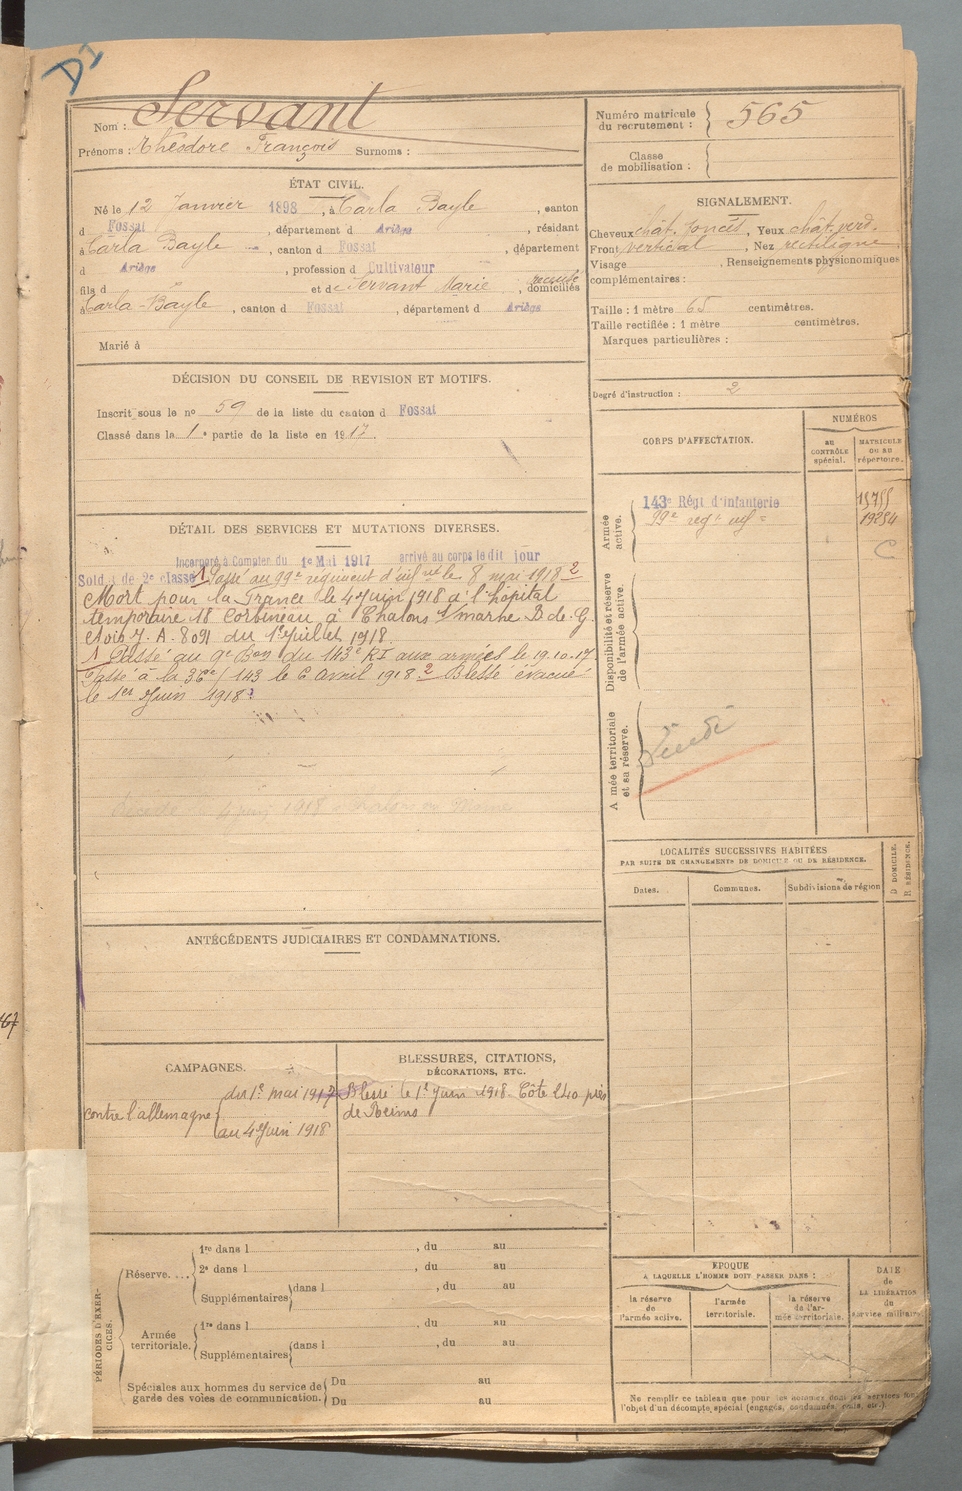 DI
Nom : Servant
Prénoms : Théodore François Surnoms :
Numéro matricule du recrutement : 565
Classe de mobilisation :
ÉTAT CIVIL.
Né le 12 Janvier 1898, à Carla Bayle, canton
d Fossat, département d Ariège, résidant
à Carla Bayle, canton d Fossat, département
d Ariège, profession d Cultivateur
fils d et de Servant Marie, domiciliés
à Carla-Bayle, canton d Fossat, département d Ariège
Marié à
SIGNALEMENT.
Cheveux chât. foncés, Yeux chât. verd.
Front vertical, Nez rectiligne
Visage . Renseignements physionomiques
complémentaires :
Taille : 1 mètre 65 centimètres.
Taille rectifiée : 1 mètre centimètres.
Marques particulières :
Degré d'instruction : 2
DÉCISION DU CONSEIL DE REVISION ET MOTIFS.
Inscrit sous le nº 59 de la liste du canton d Fossat
Classé dans la 1e partie de la liste en 1917.
CORPS D'AFFECTATION.
NUMÉROS
au CONTRÔLE spécial.
MATRICULE OU AU répertoire.
Armée active.
143e Régt d'Infanterie
99e regt inf
19254
C
Disponibilité et réserve de l'armée active.
A mée territoriale et sa réserve.
DÉTAIL DES SERVICES ET MUTATIONS DIVERSES.
Incorporé à Compter du 1er Mai 1917 arrivé au corps le dit jour
Soldat de 2e classe 1 Passé au 99e regiment d'infrie le 8 mai 1918 2
Mort pour la France le 4 Juin 1918 à l'hôpital
temporaire 18 Corbineau à Chalons s/marne D. de. G.
Avis 7. A. 8091 du 1er Juillet 1918.
1 Passé au 9e Bon du 143e RI aux armées le 19.10.17
Passé à la 36e/143 le 6 Avril 1918 2 Blessé évacué
le 1er Juin 1918.
4 juin 1918
LOCALITÉS SUCCESSIVES HABITÉES
PAR SUITE DE CHANGEMENTS DE DOMICILE OU DE RÉSIDENCE.
Dates.
Communes.
Subdivisions de région
D DOMICILE.
R RÉSIDENCE.
ANTÉCÉDENTS JUDICIAIRES ET CONDAMNATIONS.
CAMPAGNES.
contre l'allemagne
du 1er mai 1917
au 4 Juin 1918
BLESSURES, CITATIONS,
DÉCORATIONS, ETC.
Blessé le 1er Juin 1918. Côte 240 près
de Reims
PÉRIODES D'EXERCICES.
Réserve....
1re dans l , du au
2e dans l , du au
Supplémentaires dans l , du au
Armée territoriale.
1re dans l , du au
Supplémentaires dans l , du au
Spéciales aux hommes du service de
garde des voies de communication.
Du au
Du au
EPOQUE
A LAQUELLE L'HOMME DOIT PASSER DANS :
la réserve de l'armée active.
l'armée territoriale.
la réserve de l'armée territoriale.
DATE de LA LIBÉRATION du service militaire
Ne remplir ce tableau que pour les hommes dont les services font
l'objet d'un décompte spécial (engagés, condamnés, omis, etc.).